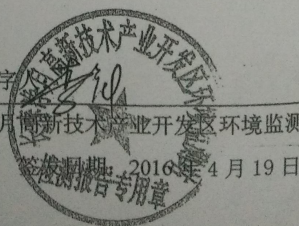 字
月高新技术产业开发区环境监测
签发日期：2016年4月19日
高新技术产业开发区环
检测报告专用章